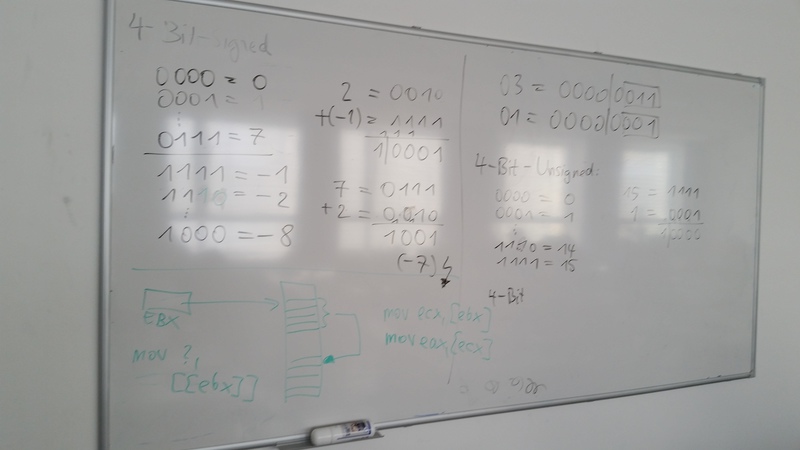 4-Bit-signed
0000 = 0
0001 = 1
⋮
0111 = 7
1111 = -1
1110 = -2
⋮
1000 = -8
2 = 0010
+(-1) = 1111
111
1|0001
7 = 0111
+2 = 0010
1001
(-7)
03 = 0000|0011
01 = 0000|0001
4-Bit-Unsigned:
0000 = 0
0001 = 1
⋮
1110 = 14
1111 = 15
15 = 1111
1 = 0001
10000
4-Bit
EBX
mov ?,
[[ebx]]
mov ecx, [ebx]
mov eax [ecx]